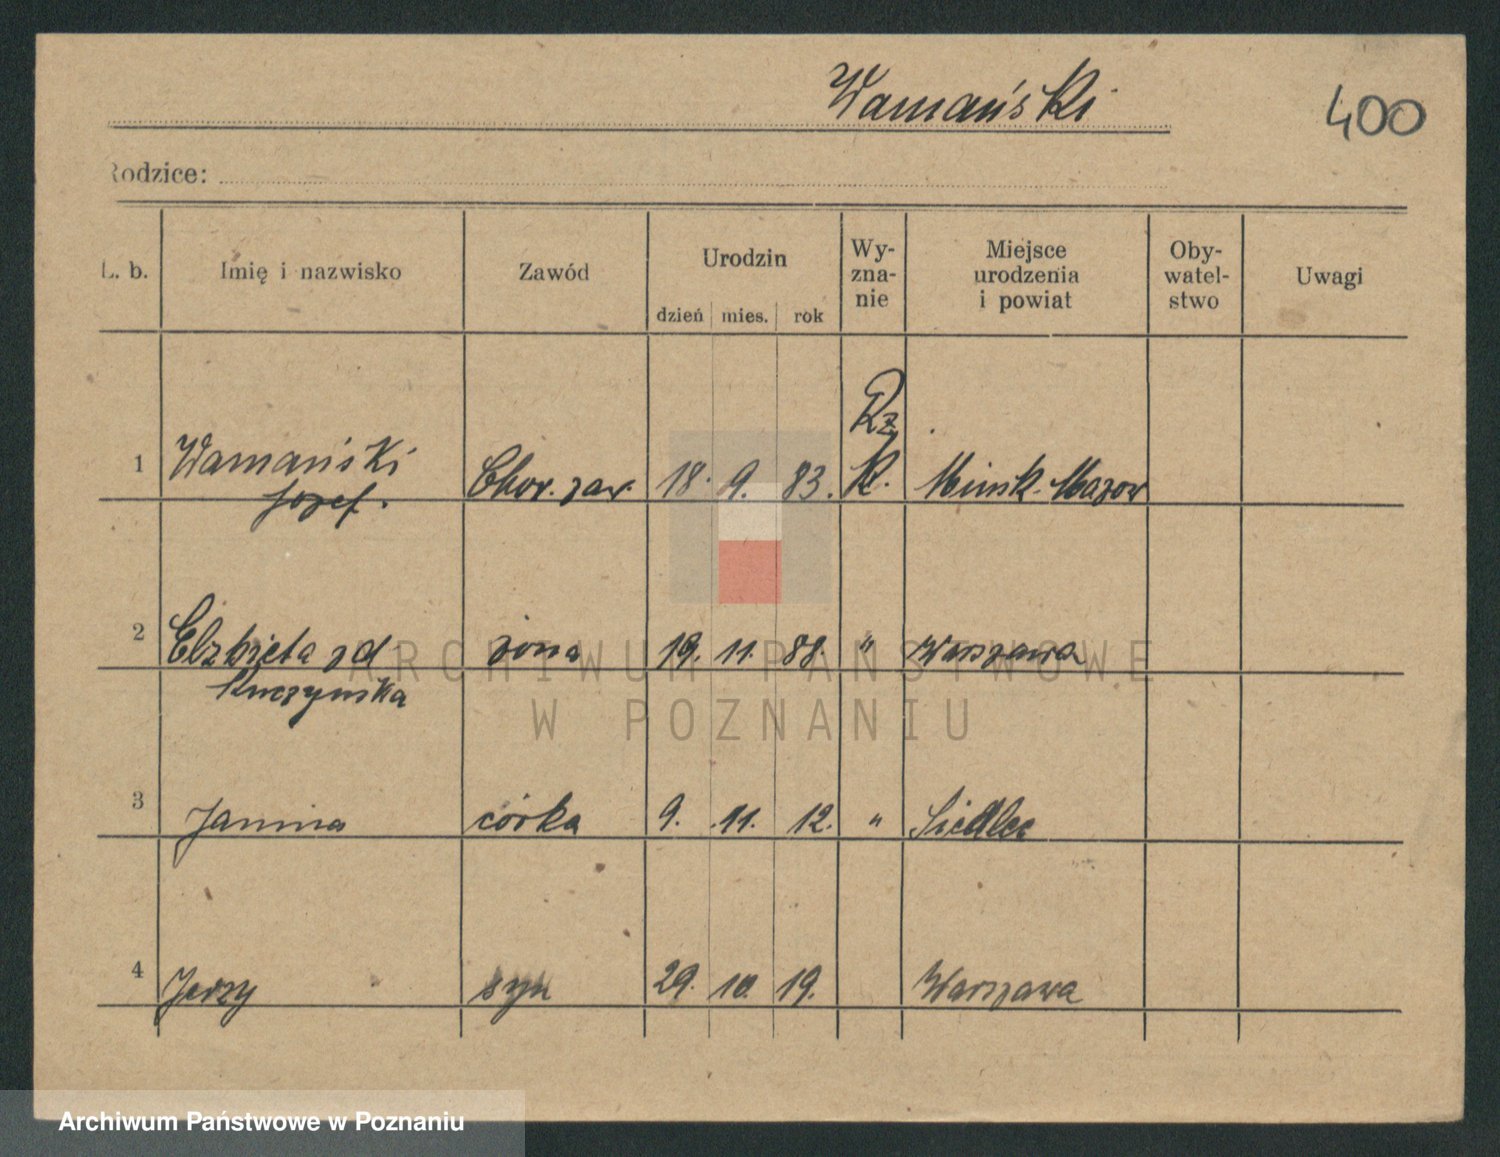 Wamański
400
Rodzice:
L. b. Imię i nazwisko Zawód Urodzin dzień mies. rok Wy-zna-nie Miejsce urodzenia i powiat Oby-watel-stwo Uwagi
1 Wamański Chor. zaw. 18. 9. 83. Rz. K. Minsk-Mazow
Jozef.
2 Elzbieta zd żona 19. 11. 88. " Warszawa
Kuczynska
3 Janina córka 9. 11. 12. " Siedlec
4 Jerzy syn 29. 10. 19. Warszawa
ARCHIWUM PAŃSTWOWE
W POZNANIU
Archiwum Państwowe w Poznaniu